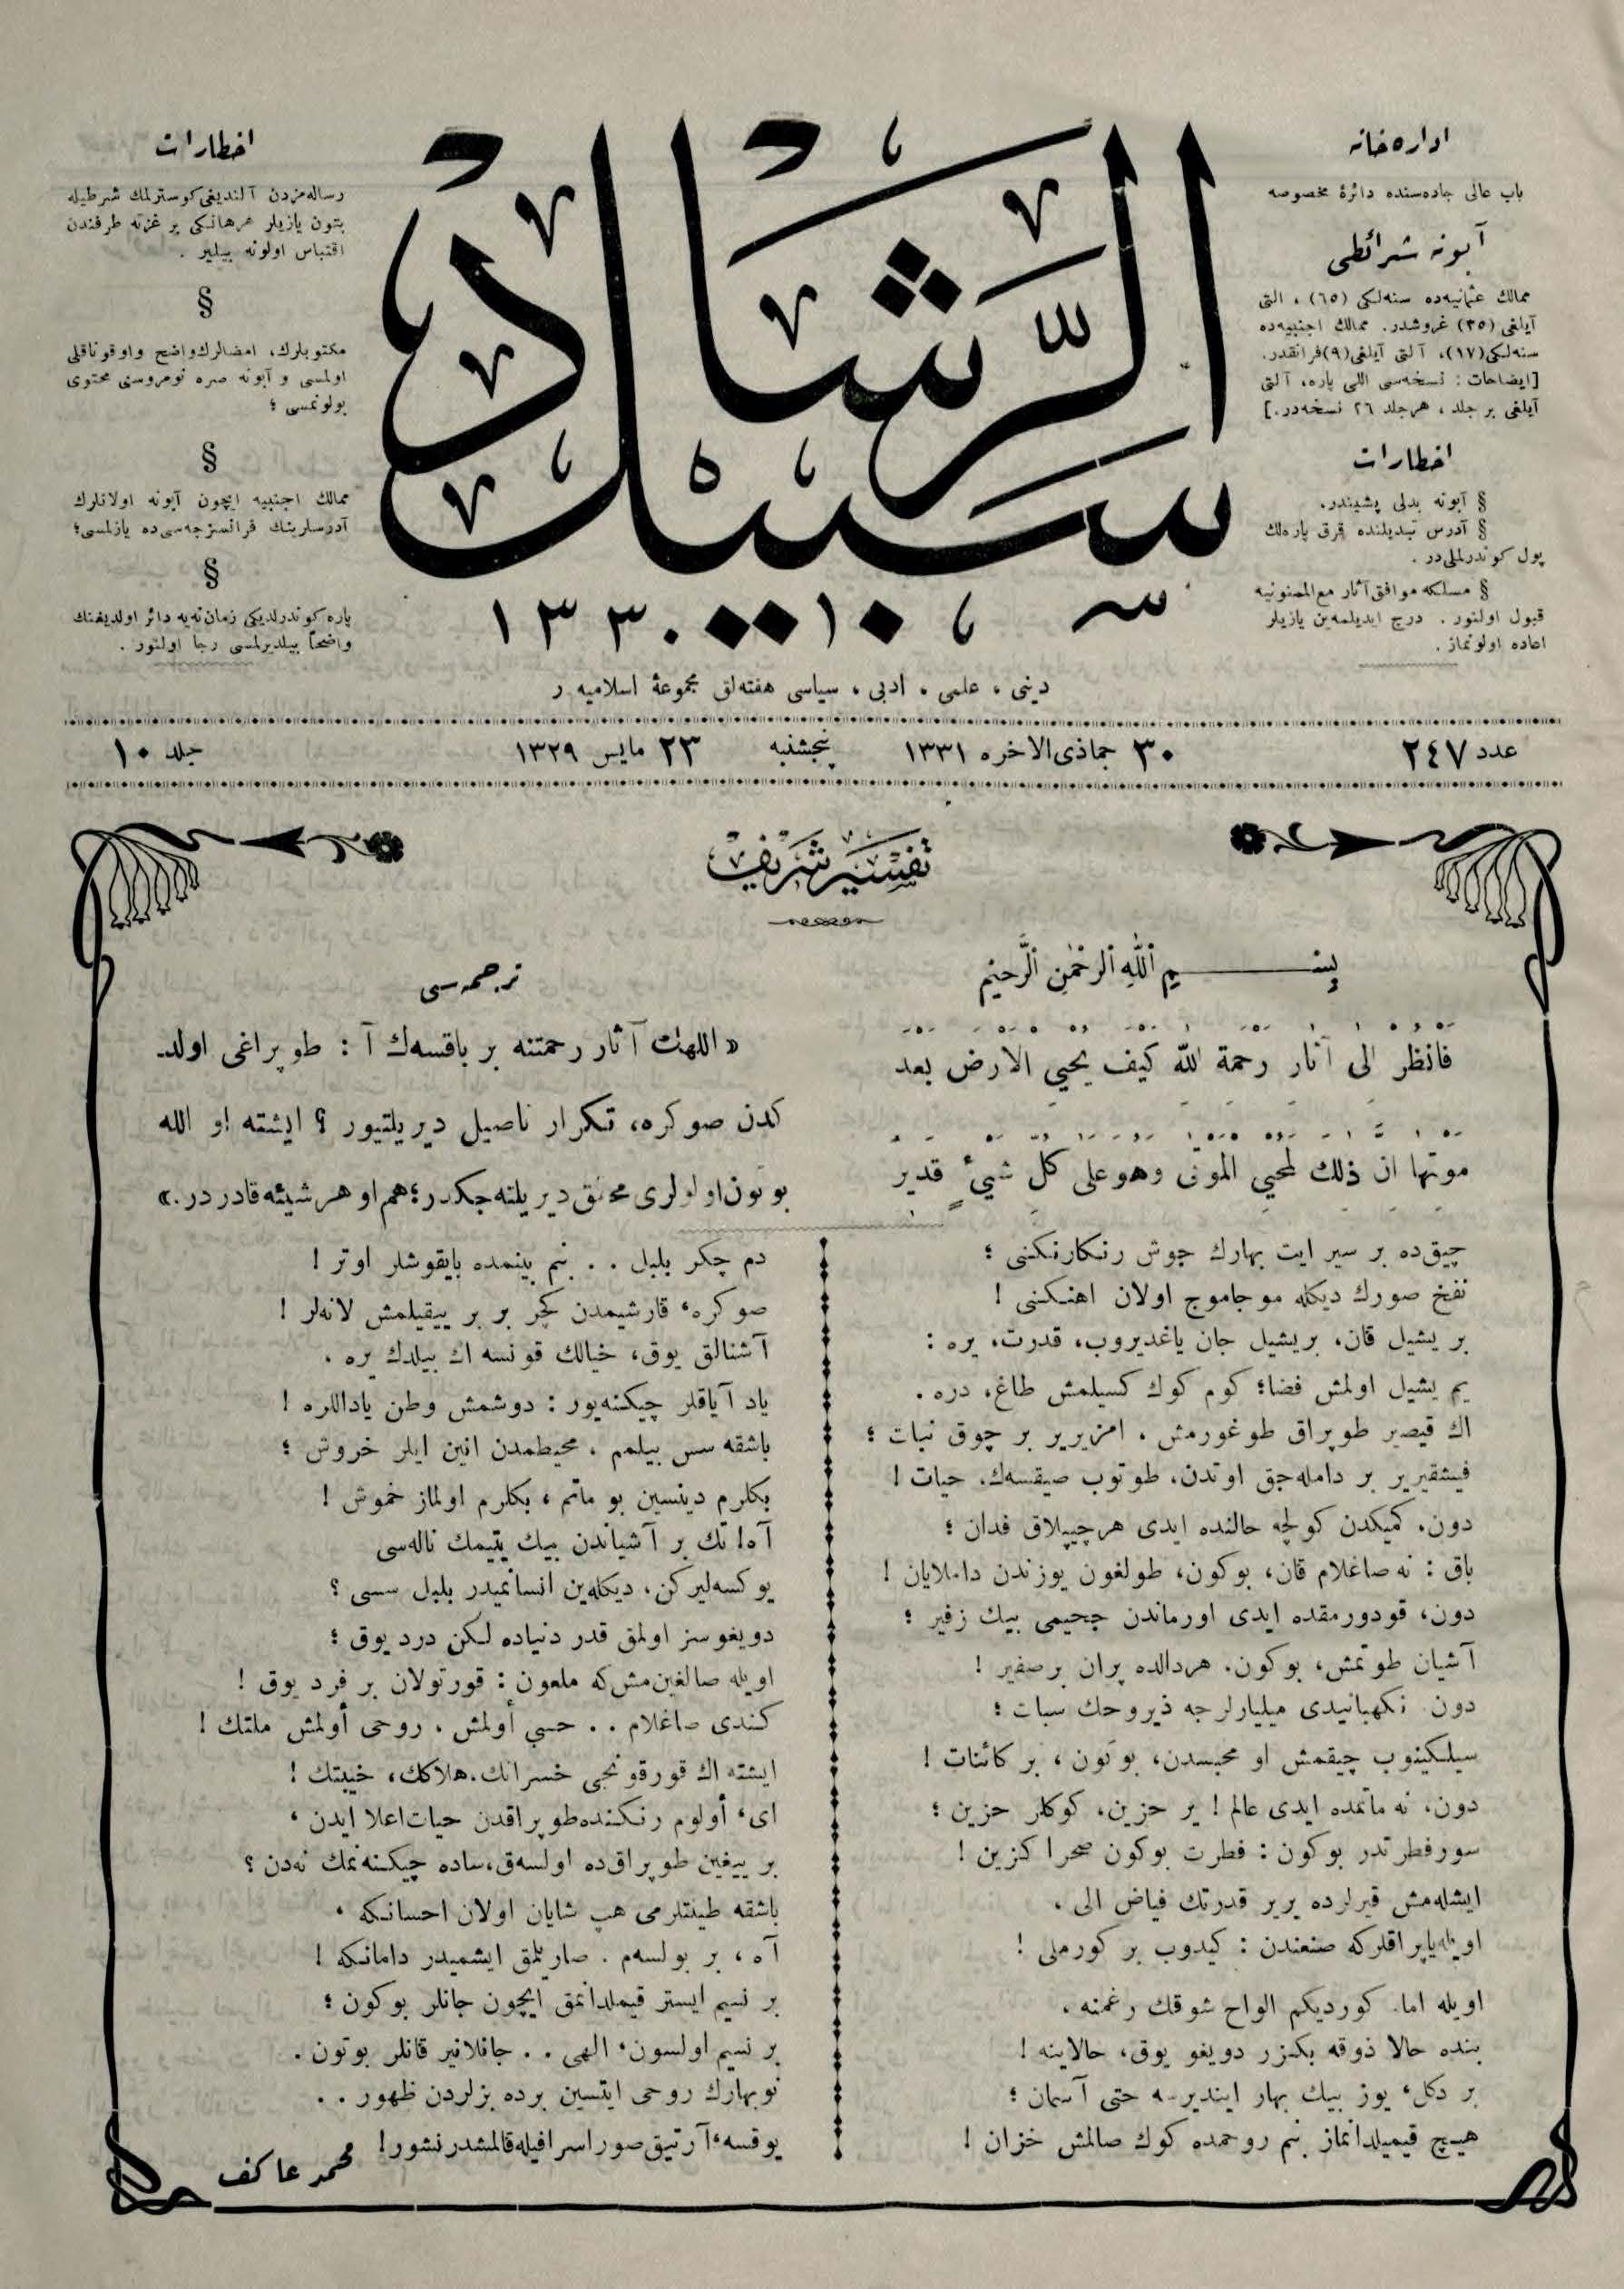 اداره‌خانه
باب عالی جاده‌سنده دائرهٔ مخصوصه
آبونه شرائطی
ممالك عثمانیه‌ده سنه‌لکی (٦٥) ، التی
آیلغی (٣٥) غروشدر. ممالك اجنبیه‌ده
سنه‌لکی(١٧)، آلتی آیلغی(٩)فرانقدر.
[ایضاحات : نسخه‌سی اللی پاره، آلتی
آیلغی بر جلد ، هرجلد ٢٦ نسخه‌در.]
اخطارات
§ آبونه بدلی پشیندر.
§ آدرس تبدیلنده قرق پاره‌لك
پول کوندرلملی‌در .
§ مسلکه موافق آثار مع‌الممنونیه
قبول اولنور . درج ایدیلمه‌ین یازیلر
اعاده اولونماز .
سبیل الرشاد
١٣٣٠
دینی ، علمی ، ادبی ، سیاسی هفته‌لق مجموعهٔ اسلامیه‌در
اخطارات
رساله‌مزدن آلندیغی‌کوسترلمك شرطیله
بتون یازیلر هرهانکی بر غزته طرفندن
اقتباس اولونه بیلیر .
§
مکتوبلرك، امضالرك‌واضح واوقوناقلی
اولمسی و آبونه صره نومروسنی محتوی
بولونمسی ؛
§
ممالك اجنبیه ایچون آبونه اولانلرك
آدرسلرینك فرانسزجه‌سی‌ده یازلمسی؛
§
پاره‌کوندرلدیکی زمان‌نه‌یه دائر اولدیغنك
واضحاً بیلدیرلمسی رجا اولنور .
عدد ٢٤٧ ٣٠ جماذی‌الاخره ١٣٣١ پنجشنبه ٢٣ مایس ١٣٢٩ جلد ١٠
تفسیر شریف
بسم الله الرحمن الرحیم
فانظر الی آثار رحمة الله کیف یحیی الارض بعد
موتها ان ذلك لمحیی الموتی وهو علی کل شیئ قدیر
ترجمه‌سی
« اللهك آثار رحمتنه بر باقسه‌ك آ : طوپراغی اولد‌
کدن صوکره، تکرار ناصیل دیریلتیور ؟ ایشته او الله
بوتون‌اولولری محقق دیریلته‌جکدر؛هم‌او هرشیئه‌قادردر.»
چیق‌ده بر سیر ایت بهارك جوش رنکارنکنی ؛
نفخ صورك دیکله موجاموج اولان اهنکنی !
بر یشیل قان، بریشیل جان یاغدیروب، قدرت، یره :
یم یشیل اولمش فضا؛ کوم کوك کسیلمش طاغ، دره .
اك قیصیر طوپراق طوغورمش ، امزیریر بر چوق نبات ؛
فیشقیریر بر دامله‌جق اوتدن، طوتوب صیقسه‌ك، حیات !
دون، کمیکدن کولچه حالنده ایدی هرچیپلاق فدان ؛
باق : نه صاغلام قان، بوکون، طولغون یوزندن داملایان !
دون، قودورمقده ایدی اورماندن جحیمی بیك زفیر ؛
آشیان طوتمش، بوکون، هردالده پران برصفیر !
دون نکهبانیدی میلیارلرجه ذیروحك سبات ؛
سیلکینوب چیقمش او محبسدن، بوتون ، بر کائنات !
دون، نه ماتمده ایدی عالم ! یر حزین، کوکلر حزین ؛
سورفطرتدر بوکون : فطرت بوکون صحرا کزین !
ایشله‌مش قیرلرده یریر قدرتك فیاض الی ،
اویله‌یاپراقلرکه صنعندن : کیدوب بر کورملی !
اویله اما، کوردیکم الواح شوقك رغمنه ،
بنده حالا ذوقه بکزر دویغو یوق، حالاینه !
بر دکل، یوز بیك بهار ایندیرسه حتی آسمان ؛
هیچ قیمیلدانماز بنم روحمده کوك صالمش خزان !
دم چکر بلبل . . بنم بینمده بایقوشلر اوتر !
صوکره، قارشیمدن کچر بر بر ییقیلمش لانه‌لر !
آشنالق یوق، خیالك قونسه اك بیلدك یره .
یاد آیاقلر چیکنه‌یور : دوشمش وطن یاداللره !
باشقه سس بیلمم ، محیطمدن انین ایلر خروش ؛
بکلرم دینسین بو ماتم ، بکلرم اولماز خموش !
آه! تك بر آشیاندن بیك یتیمك ناله‌سی
یوکسه‌لیرکن، دیکله‌ین انسانمیدر بلبل سسی ؟
دویغوسز اولمق قدر دنیاده لکن درد یوق ؛
اویله صالغین‌مش‌که ملعون : قورتولان بر فرد یوق !
کندی صاغلام . . حسی أولمش ، روحی أولمش ملتك !
ایشته اك قورقونجی خسرانك، هلاکك، خیبتك !
ای، أولوم رنکنده‌طوپراقدن حیات‌اعلا ایدن ،
بر ییغین طوپراق‌ده اولسه‌ق،ساده چیکنه‌نمك نه‌دن ؟
باشقه طینتلرمی هپ شایان اولان احسانکه ،
آه ، بر بولسه‌م . صاریلمق ایشمیدر دامانکه !
بر نسیم ایستر قیملدانمق ایچون جانلر بوکون ؛
بر نسیم اولسون، الهی . . جانلانیر قانلر بوتون .
نوبهارك روحی ایتسین برده بزلردن ظهور . .
یوقسه،آرتیق‌صور اسرافیله‌قالمشدر‌نشور!
محمد عاکف